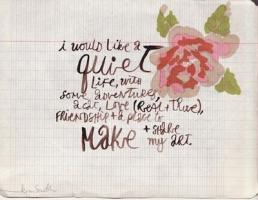 i would like a
quiet
life, with
some adventures,
a cat, love (real + true),
friendship + a place to
make + share
my art.